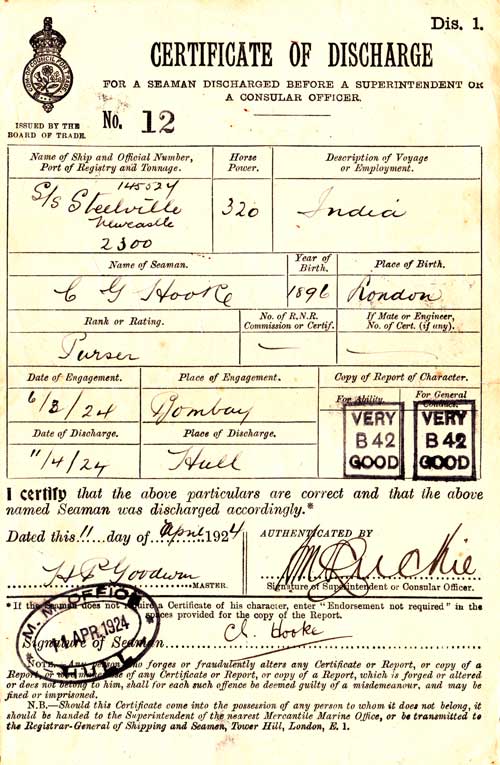 Dis. 1.
CERTIFICATE OF DISCHARGE
FOR A SEAMAN DISCHARGED BEFORE A SUPERINTENDENT OR
A CONSULAR OFFICER.
ISSUED BY THE
BOARD OF TRADE.
No. 12
Name of Ship and Official Number,
Port of Registry and Tonnage.
Horse
Power.
Description of Voyage
or Employment.
145524
S/S Steelville
Newcastle
2300
320
India
Name of Seaman.
Year of
Birth.
Place of Birth.
C G Hooke
1896
London
Rank or Rating.
No. of R.N.R.
Commission or Certif.
If Mate or Engineer,
No. of Cert. (if any).
Purser
—
—
Date of Engagement.
Place of Engagement.
Copy of Report of Character.
6/3/24
Bombay
For Ability.
For General
Conduct.
VERY
B 42
GOOD
VERY
B 42
GOOD
Date of Discharge.
Place of Discharge.
11/4/24
Hull
I certify that the above particulars are correct and that the above
named Seaman was discharged accordingly.*
Dated this 11 day of April 1924
AUTHENTICATED BY
H P Goodwin
MASTER.
Signature of Superintendent or Consular Officer.
* If the Seaman does not require a Certificate of his character, enter "Endorsement not required" in the
spaces provided for the copy of the Report.
M.M. OFFICE
11 APR.1924
HULL
Signature of Seaman
C. Hooke
NOTE.—Any person who forges or fraudulently alters any Certificate or Report, or copy of a
Report, or who makes use of any Certificate or Report, or copy of a Report, which is forged or altered
or does not belong to him, shall for each such offence be deemed guilty of a misdemeanour, and may be
fined or imprisoned.
N.B.—Should this Certificate come into the possession of any person to whom it does not belong, it
should be handed to the Superintendent of the nearest Mercantile Marine Office, or be transmitted to
the Registrar-General of Shipping and Seamen, Tower Hill, London, E. 1.